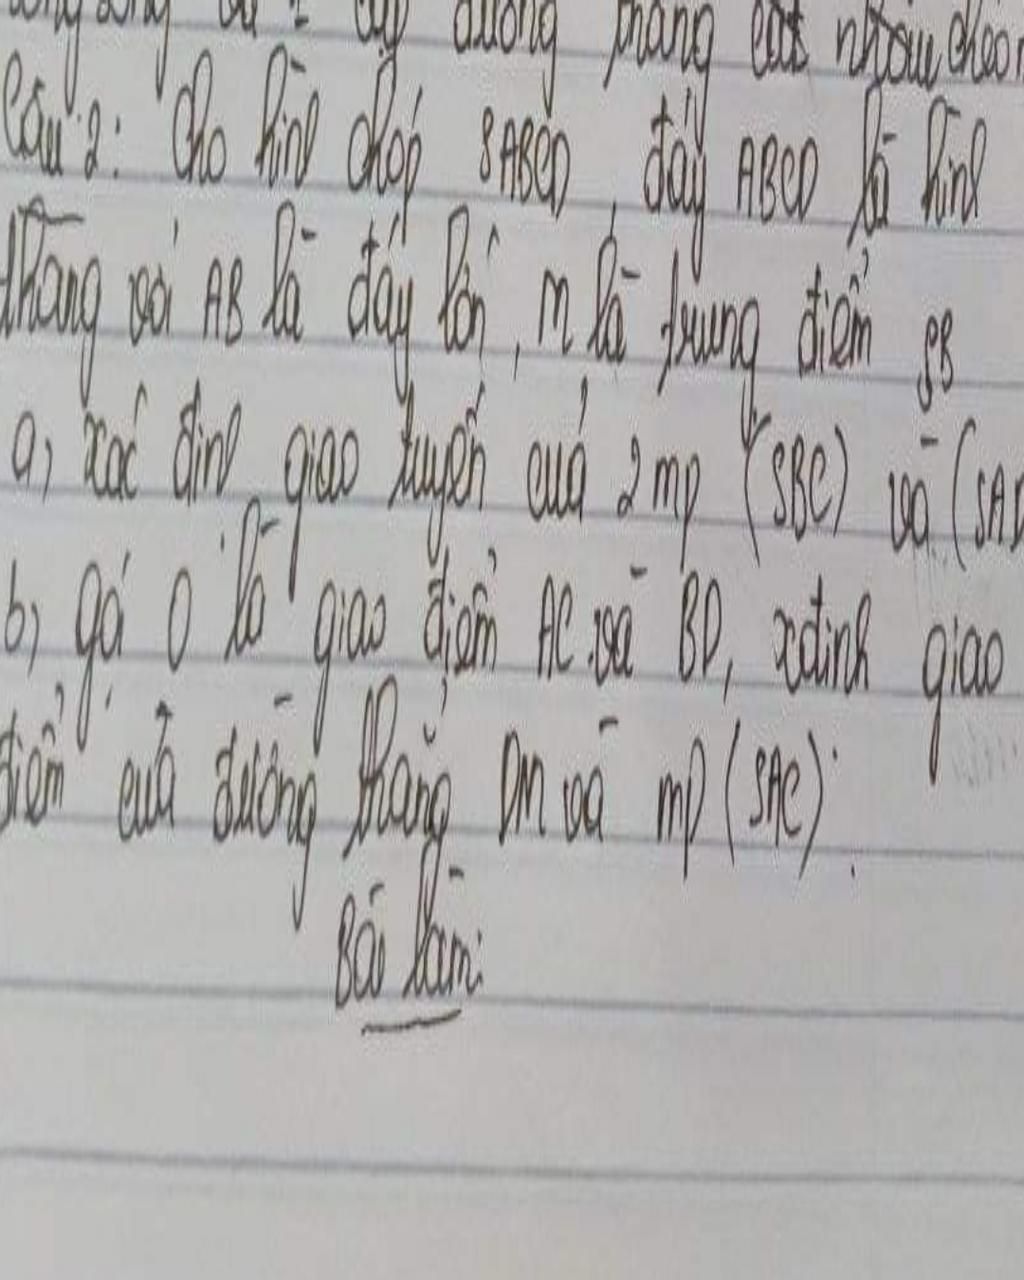 đường thẳng cắt nhau, chéo n
Câu 2: Cho hình chóp SABCD, đáy ABCD là hình
thang với AB là đáy lớn, M là trung điểm SB
a, xác định giao tuyến của 2 mp (SBC) và (SAD
b, gọi O là giao điểm AC và BD, xđịnh giao
điểm của đường thẳng DM và mp (SAC).
Bài làm: